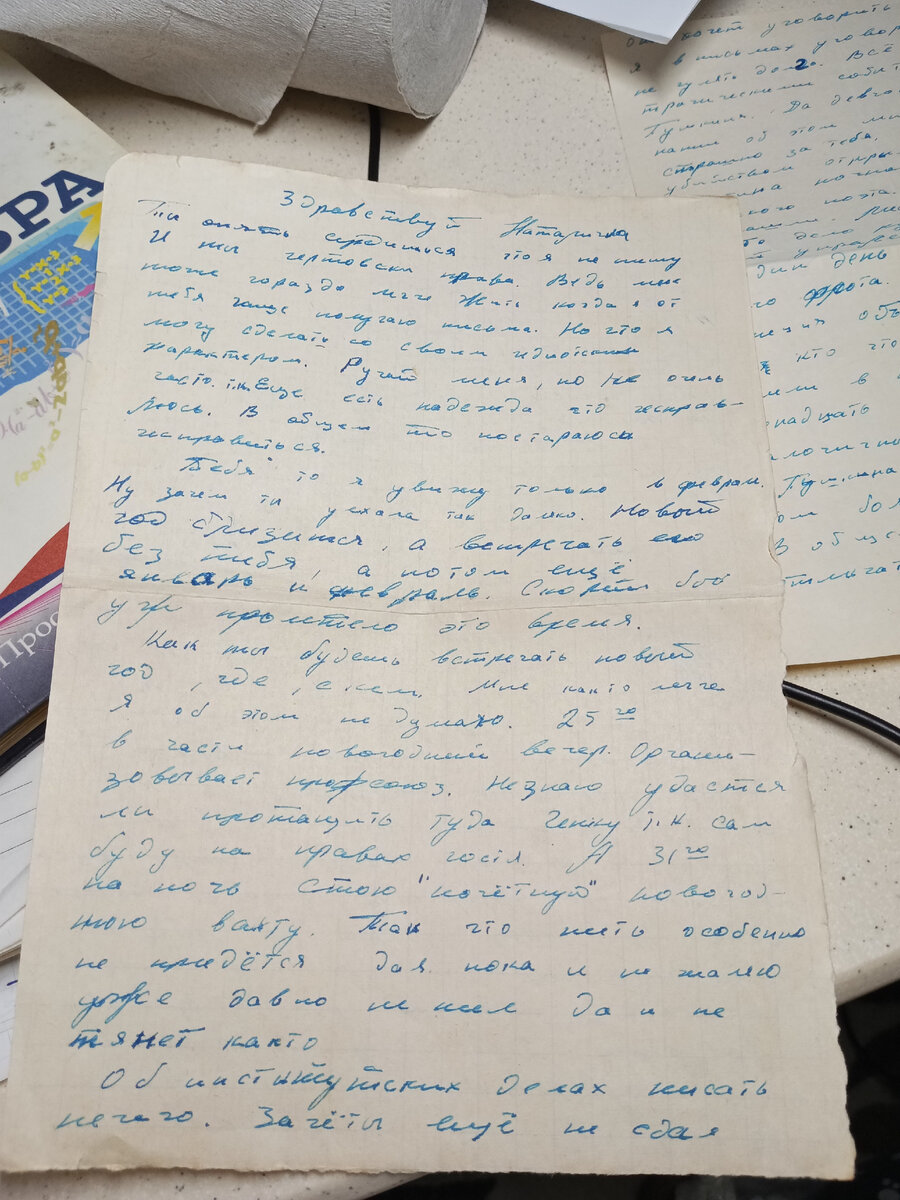 Здравствуй Наталична
Ты опять сердишься что я не пишу
И ты чертовски права Ведь мне
тоже гораздо легче жить когда я от
тебя чаще получаю письма. Но что я
могу сделать со своим идиотским
характером. Ругай меня, но не очень
часто. т.к. Еще есть надежда что исправ-
люсь. В общем то постараюсь
исправиться.
Тебя то я увижу только в феврале.
Ну зачем ты уехала так далеко. Новый
год близится, а встречать его
без тебя, а потом ещё
январь и февраль. Скорей бы
уж пролетело это время.
Как ты будешь встречать новый
год, где, с кем. Мне както легче
Я об этом не думаю. 25го
в части новогодний вечер. Органи-
зовывает профсоюз. Незнаю удастся
ли протащить туда Генку т.к. сам
буду на правах гостя. А 31го
на ночь стою "почётную" новогод-
нюю вахту. Так что пить особенно
не придётся да я пока и не жалею
уже давно не пил да и не
тянет както
Об институтских делах писать
нечего. Зачёты ещё не сдал
уговорить
я в письмах уговор
не гулять до 2. Всё
трагическими событ
Пушкина. Да девчо
об этом
страшно за тебя,
убийством
ого поэта.
дело
один день
рота.
кто что
или в
надцать
алогично
Пушкина
ом
В общ
БРА
Прос